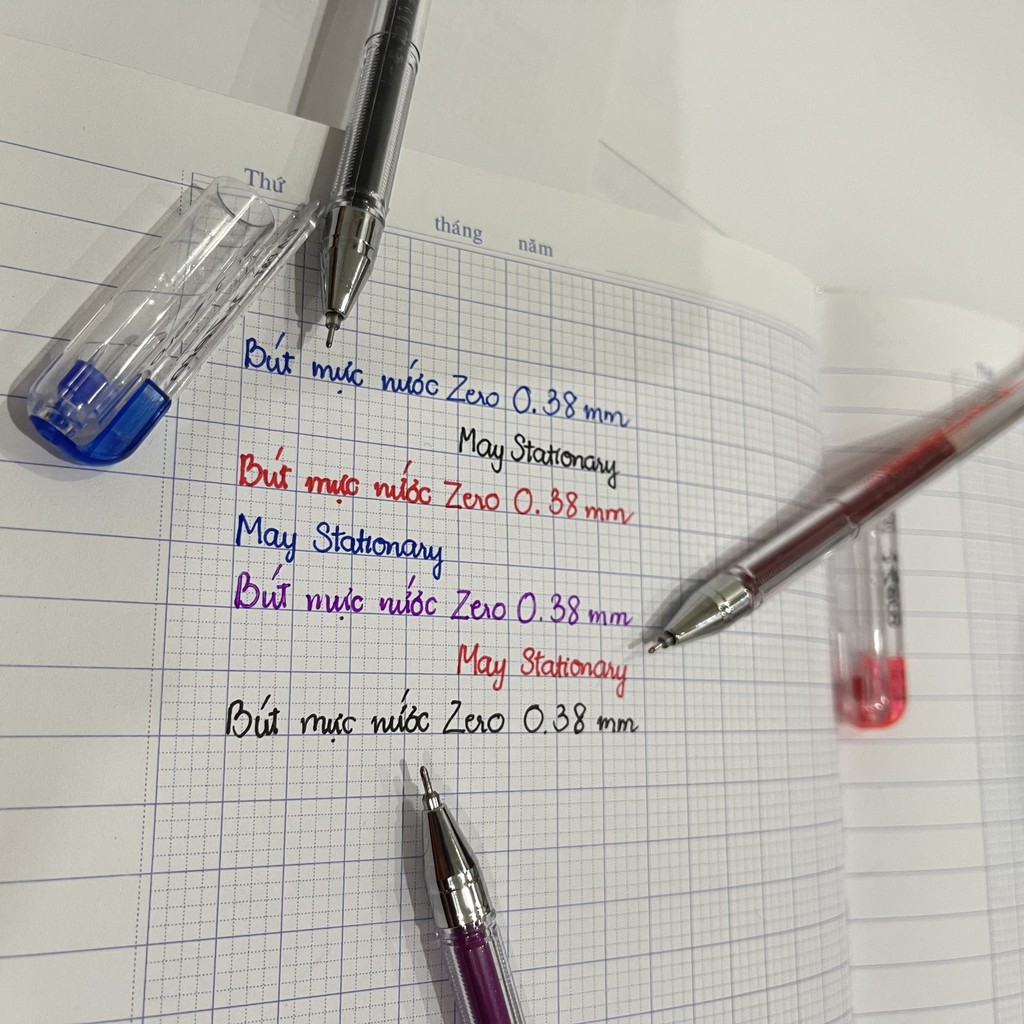 Thứ
tháng năm
Bút mực nước Zero 0.38 mm
May Stationary
Bút mực nước Zero 0.38 mm
May Stationary
Bút mực nước Zero 0.38 mm
May Stationary
Bút mực nước Zero 0.38 mm